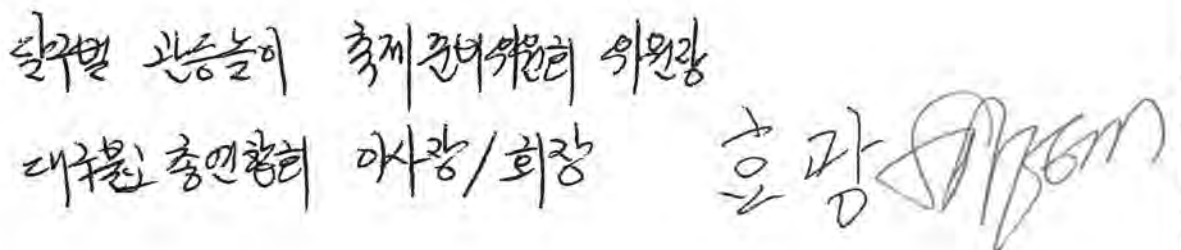 달구벌 관등놀이 축제준비위원회 위원장
대구불교총연합회 이사장/회장
효광